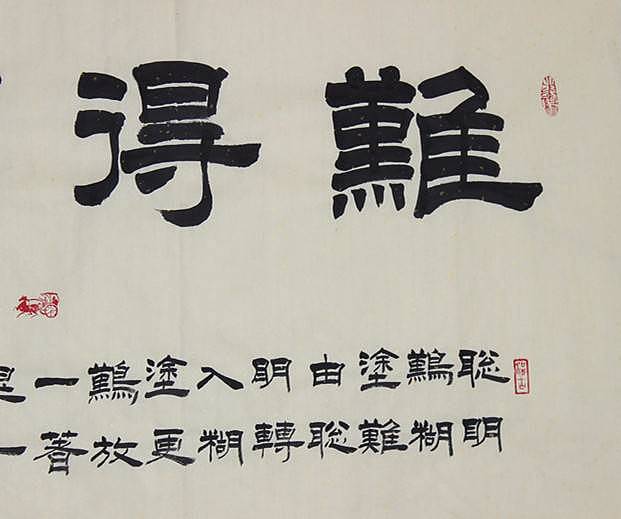 難得
聪明
難糊
塗難
由聪
明轉
入糊
塗更
難放
一著